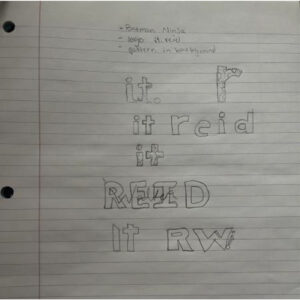 - Batman Ninja
- logo it. reid
- pattern in background
it. r
it reid
it
REID
It RW